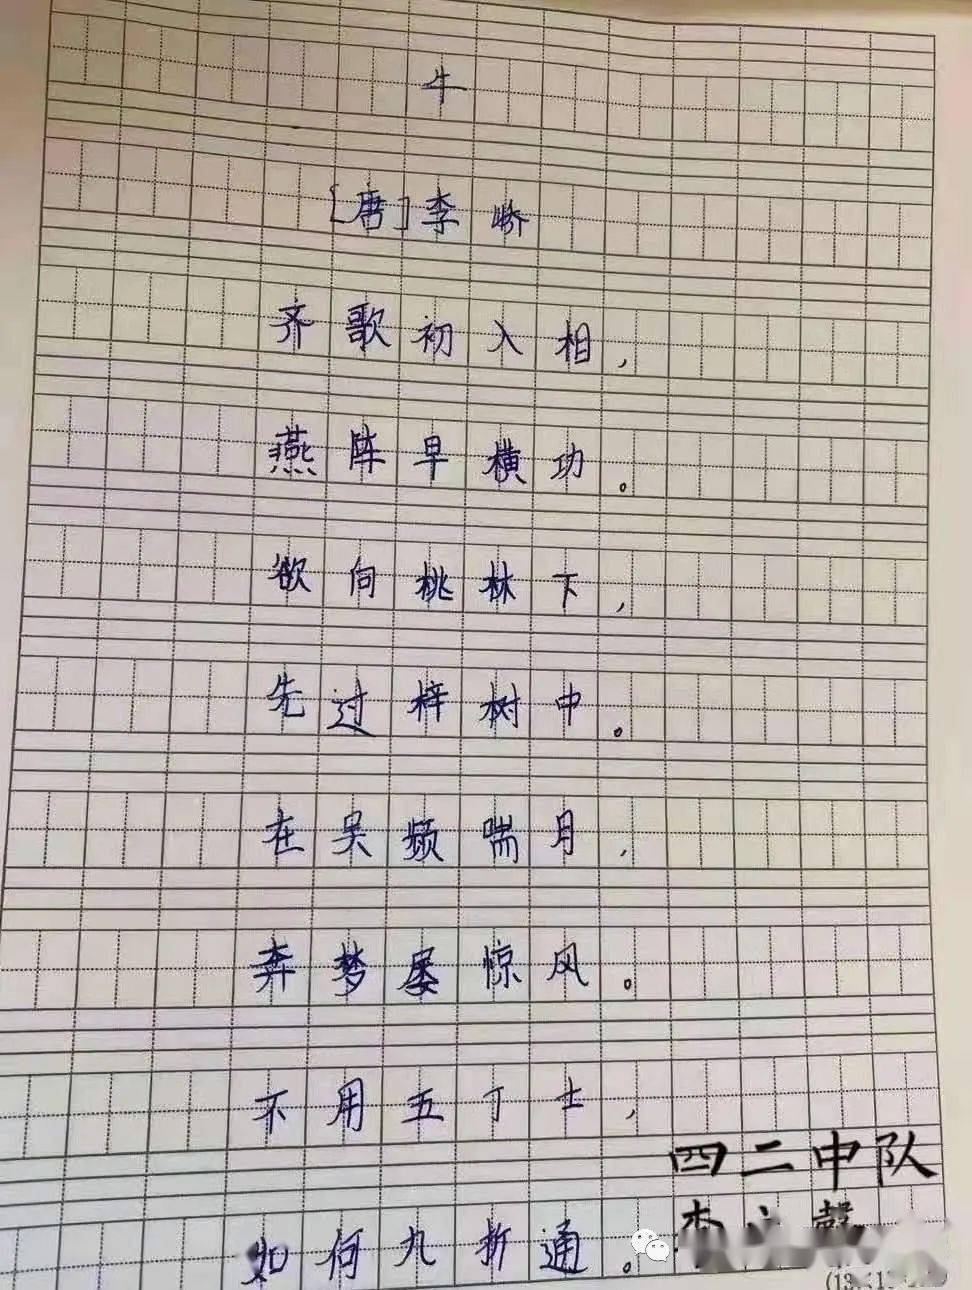 牛
[唐]李峤
齐歌初入相，
燕阵早横功。
欲向桃林下，
先过梓树中。
在吴频喘月，
奔梦屡惊风。
不用五丁士，
如何九折通。
四二中队
李